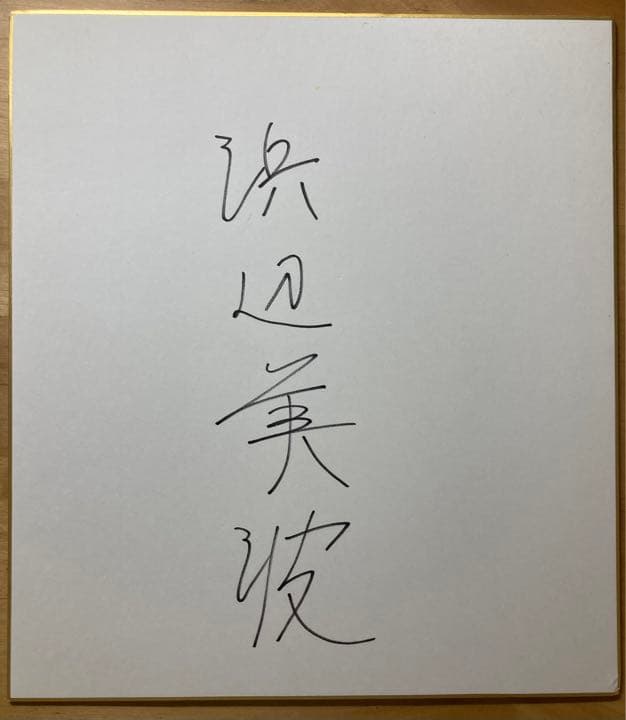 浜辺美波